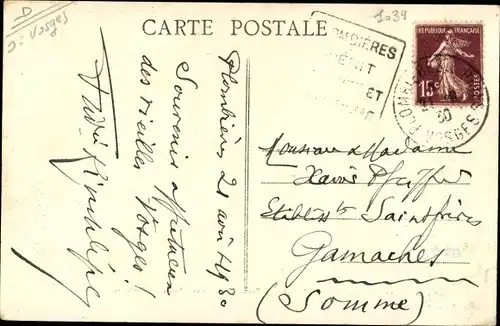 D
Vosges
CARTE POSTALE
1039
PLOMBIÈRES
ET
REPUBLIQUE FRANÇAISE
15c
POSTES
PLOMBIÈRES
30
VOSGES
Plombières, 21 août 1930
Souvenir affectueux
des vieilles Vosges !
Monsieur et Madame
Xavier Pfeiffer
Etablists Saint frères
Gamaches
(Somme)